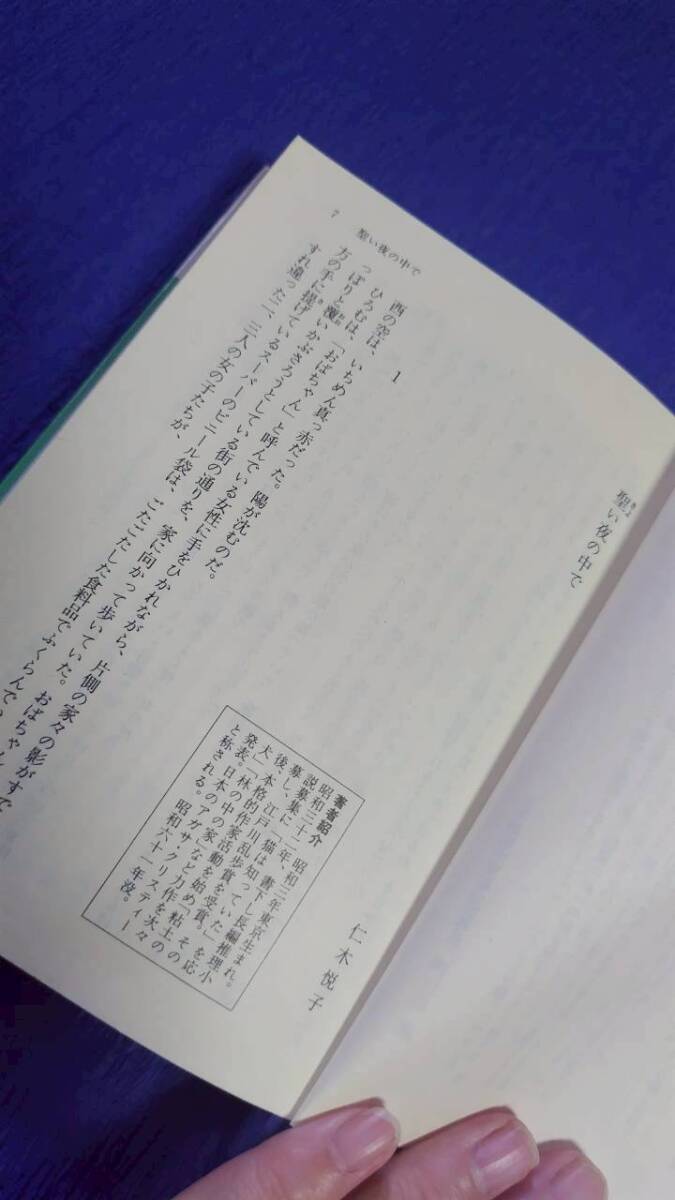 7　聖い夜の中で
聖い夜の中で
きよ
仁木悦子
著者紹介　昭和三年東京生まれ。
昭和三十二年、書下し長編推理小
説募集に「猫は知っていた」を応
募し、江戸川乱歩賞を受賞。その
後、本格的作家活動を始め「粘土の
犬」「林の中の家」など力作を次々
発表。日本のアガサ・クリスティー
と称される。昭和六十一年没。
1
西の空は、いちめん真っ赤だった。陽が沈むのだ。
ひろむは、「おばちゃん」と呼んでいる女性に手をひかれながら、片側の家々の影がす
っぽりと覆いかぶさろうとしている街の通りを、家に向かって歩いていた。おばちゃん
方の手に提げているスーパーのビニール袋は、ごたごたした食料品でふくらんでい
すれ違った二、三人の女の子たちが、